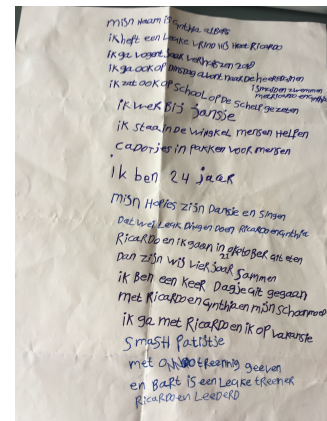 mijn naam is cynthia albers
ik heft een Leuke vrind Hij Heet Ricardo
ik ga vogent jaar verhuizen
ik ga ook op Dinsdag avont naar de
ismeinen zwemmen
ik zat ook op school op De schelp gezeten
met ricardo en cynthia
ik werk Bij jansje
ik staa in De winkel mensen Helpen
cadotjes in pakken voor mensen
ik ben 24 jaar
mijn Hobies zijn Dansje en singen
Dat wei Leuk Dingen Doen Ricardo en cynthia
Ricardo en ik gaan in oktober uit eten
21
Dan zijn wij vier jaar sammen
ik Ben een keer Dagje uit gegaan
met Ricardo en cynthia en mijn schoonmoed
ik ga met Ricardo en ik op vakansie
Smash Patistje
met treening geeven
en Bart is een Leuke treener
Ricardo en Leederd